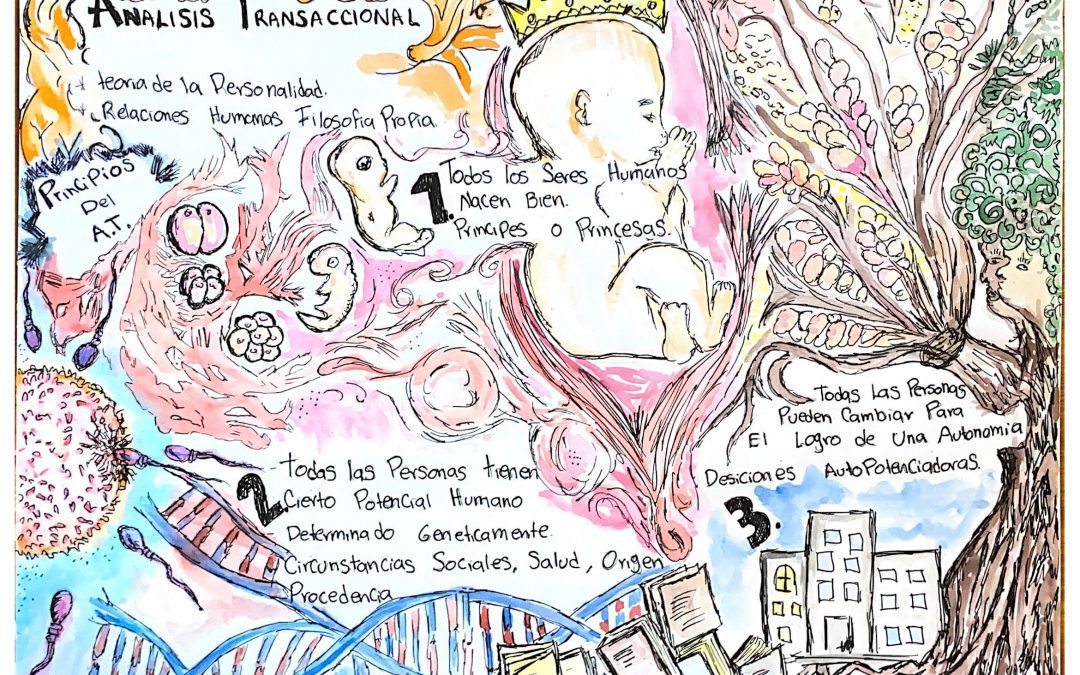 ANALISIS TRANSACCIONAL
teoria de la Personalidad.
Relaciones Humanas Filosofia Propia.
Principios
Del
A.T.
1. Todos los Seres Humanos
Nacen Bien.
Principes o Princesas.
2. todas las Personas tienen
Cierto Potencial Humano
Determinado Geneticamente.
Circunstancias Sociales, Salud, Origen
Procedencia
3. Todas Las Personas
Pueden Cambiar Para
El Logro de Una Autonomia
Desiciones AutoPotenciadoras.